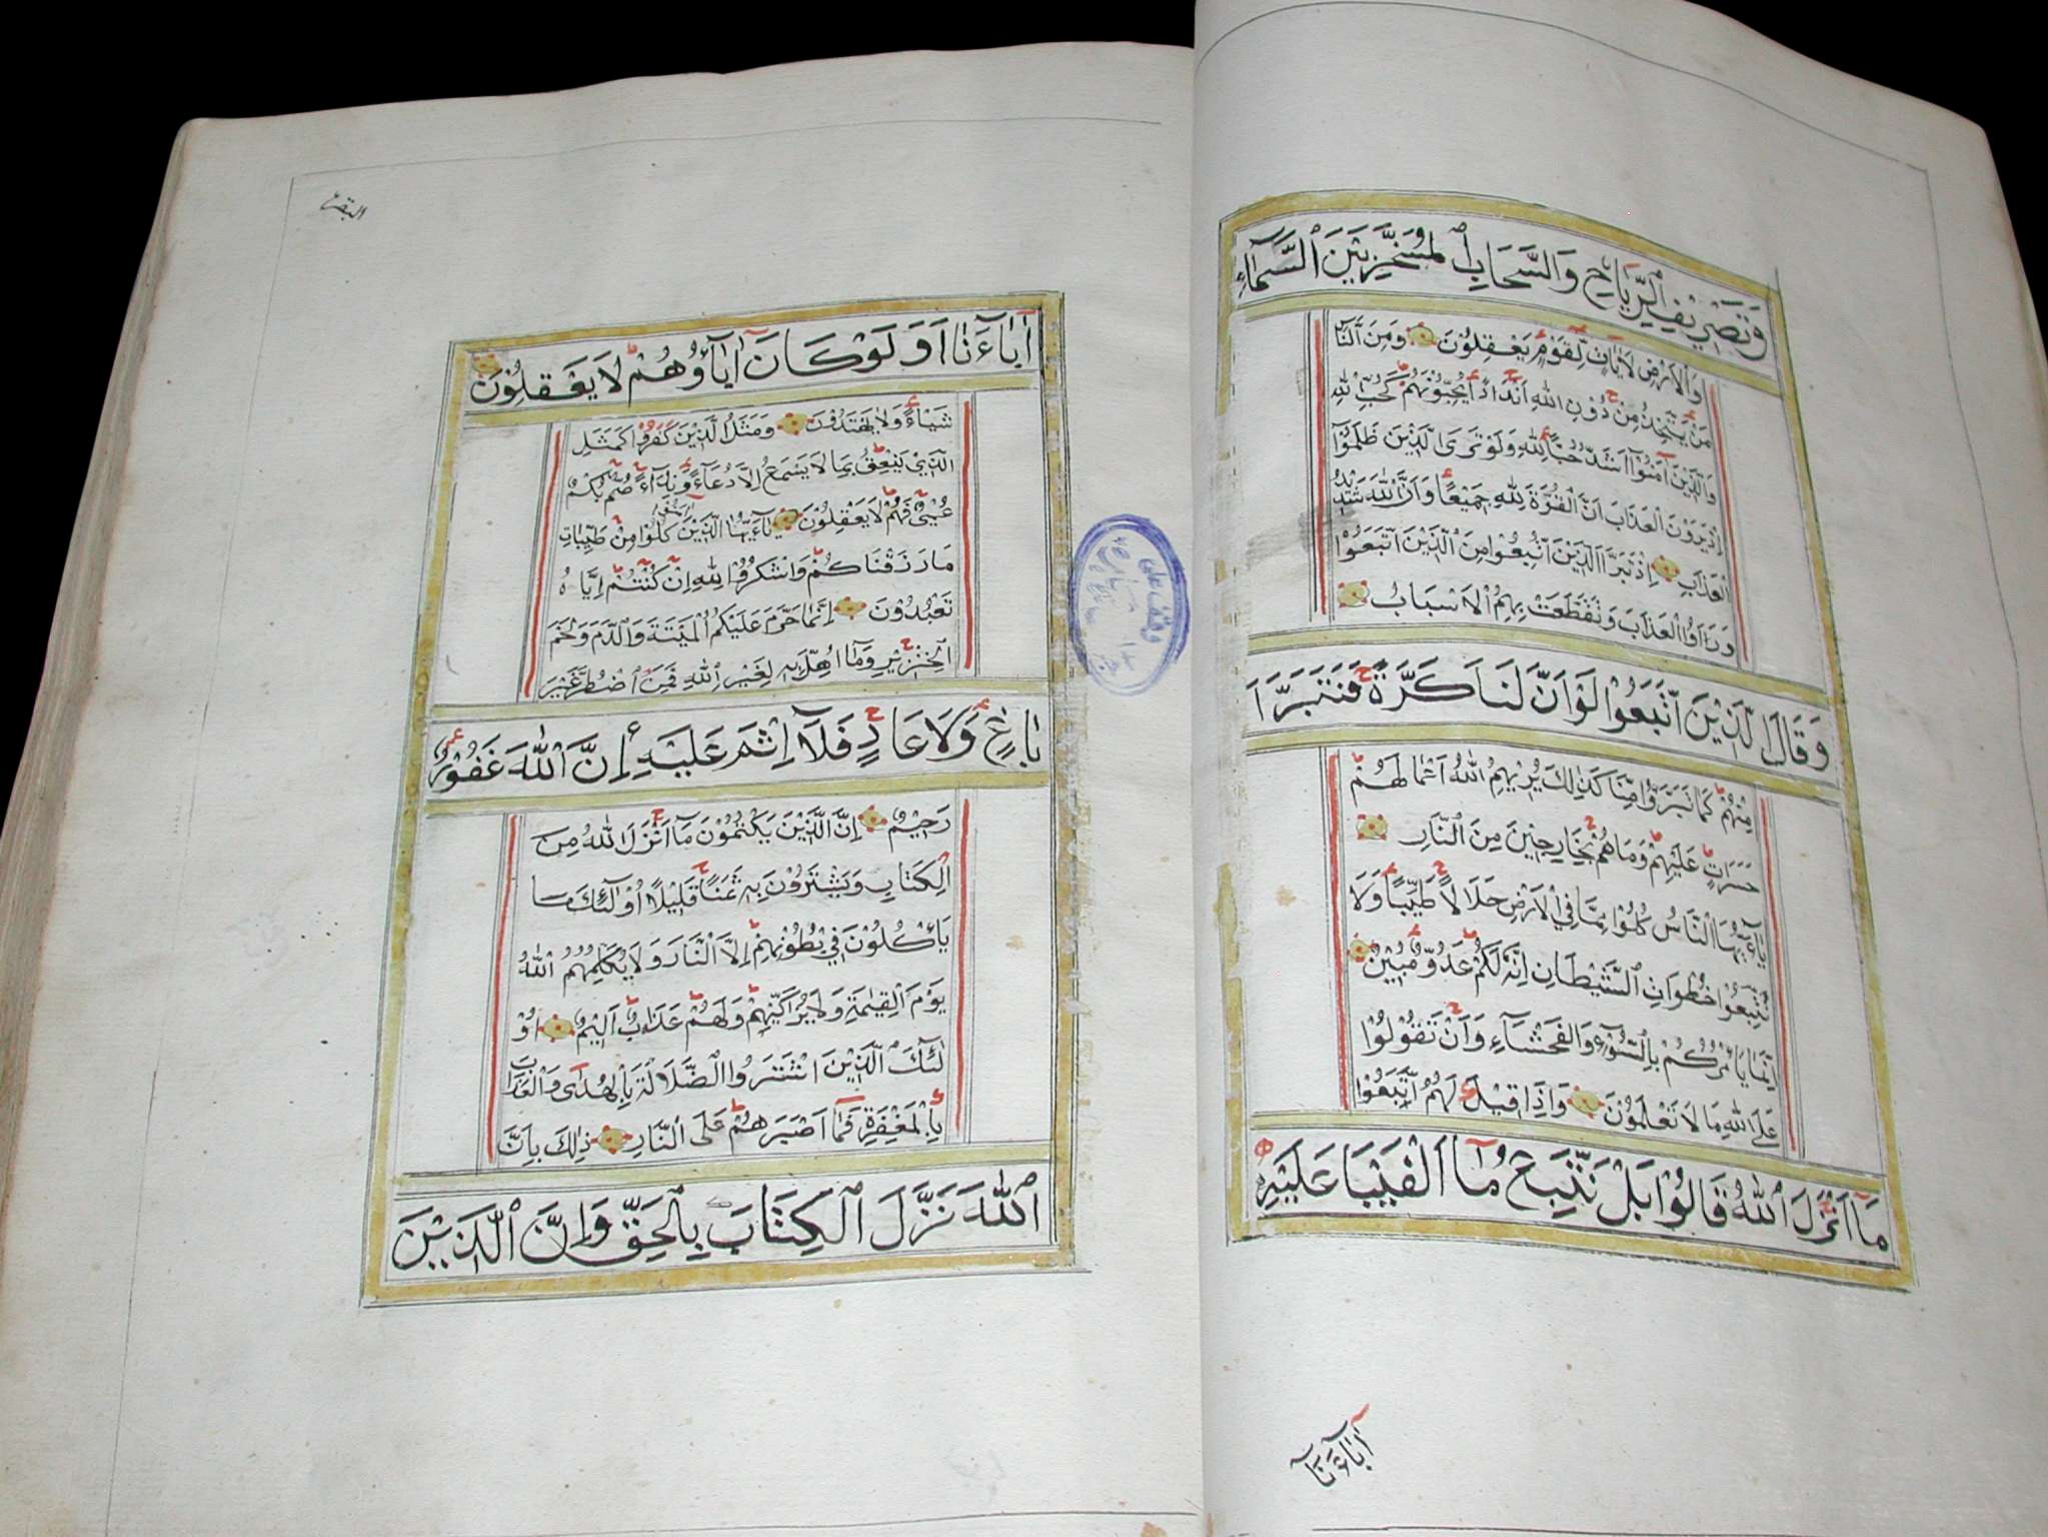 وَتَصْرِيْفِ الرِّيَاحِ وَالسَّحَابِ الْمُسَخَّرِ بَيْنَ السَّمَآءِ
وَالْاَرْضِ لَاٰيَاتٍ لِّقَوْمٍ يَّعْقِلُوْنَ وَمِنَ النَّاسِ
مَنْ يَّتَّخِذُ مِنْ دُوْنِ اللّٰهِ اَنْدَادًا يُّحِبُّوْنَهُمْ كَحُبِّ اللّٰهِ
وَالَّذِيْنَ اٰمَنُوْٓا اَشَدُّ حُبًّا لِلّٰهِ وَلَوْ تَرَى الَّذِيْنَ ظَلَمُوْٓا
اِذْ يَرَوْنَ الْعَذَابَ اَنَّ الْقُوَّةَ لِلّٰهِ جَمِيْعًا وَاَنَّ اللّٰهَ شَدِيْدُ
الْعَذَابِ اِذْ تَبَرَّاَ الَّذِيْنَ اتُّبِعُوْا مِنَ الَّذِيْنَ اتَّبَعُوْا
وَرَاَوُا الْعَذَابَ وَتَقَطَّعَتْ بِهِمُ الْاَسْبَابُ
وَقَالَ الَّذِيْنَ اتَّبَعُوْا لَوْ اَنَّ لَنَا كَرَّةً فَنَتَبَرَّاَ
مِنْهُمْ كَمَا تَبَرَّؤُا مِنَّا كَذٰلِكَ يُرِيْهِمُ اللّٰهُ اَعْمَالَهُمْ
حَسَرَاتٍ عَلَيْهِمْ وَمَا هُمْ بِخَارِجِيْنَ مِنَ النَّارِ
يَآءَيُّهَا النَّاسُ كُلُوْا مِمَّا فِي الْاَرْضِ حَلَالًا طَيِّبًا وَلَا
تَتَّبِعُوْا خُطُوَاتِ الشَّيْطَانِ اِنَّهُ لَكُمْ عَدُوٌّ مُّبِيْنٌ
اِنَّمَا يَاْمُرُكُمْ بِالسُّوْٓءِ وَالْفَحْشَآءِ وَاَنْ تَقُوْلُوْا
عَلَى اللّٰهِ مَا لَا تَعْلَمُوْنَ وَاِذَا قِيْلَ لَهُمُ اتَّبِعُوْا
مَآ اَنْزَلَ اللّٰهُ قَالُوْا بَلْ نَتَّبِعُ مَآ اَلْفَيْنَا عَلَيْهِ
اٰبَآءَنَآ
البقرة
اٰبَآءَنَا اَوَلَوْ كَانَ اٰبَآؤُهُمْ لَا يَعْقِلُوْنَ
شَيْـًٔا وَّلَا يَهْتَدُوْنَ وَمَثَلُ الَّذِيْنَ كَفَرُوْا كَمَثَلِ
الَّذِيْ يَنْعِقُ بِمَا لَا يَسْمَعُ اِلَّا دُعَآءً وَّنِدَآءً صُمٌّ بُكْمٌ
عُمْيٌ فَهُمْ لَا يَعْقِلُوْنَ يَآءَيُّهَا الَّذِيْنَ اٰمَنُوْا كُلُوْا مِنْ طَيِّبَاتِ
مَا رَزَقْنَاكُمْ وَاشْكُرُوْا لِلّٰهِ اِنْ كُنْتُمْ اِيَّاهُ
تَعْبُدُوْنَ اِنَّمَا حَرَّمَ عَلَيْكُمُ الْمَيْتَةَ وَالدَّمَ وَلَحْمَ
الْخِنْزِيْرِ وَمَآ اُهِلَّ بِهِ لِغَيْرِ اللّٰهِ فَمَنِ اضْطُرَّ غَيْرَ
بَاغٍ وَّلَا عَادٍ فَلَآ اِثْمَ عَلَيْهِ اِنَّ اللّٰهَ غَفُوْرٌ
رَحِيْمٌ اِنَّ الَّذِيْنَ يَكْتُمُوْنَ مَآ اَنْزَلَ اللّٰهُ مِنَ
الْكِتَابِ وَيَشْتَرُوْنَ بِهِ ثَمَنًا قَلِيْلًا اُولٰٓئِكَ مَا
يَاْكُلُوْنَ فِيْ بُطُوْنِهِمْ اِلَّا النَّارَ وَلَا يُكَلِّمُهُمُ اللّٰهُ
يَوْمَ الْقِيٰمَةِ وَلَا يُزَكِّيْهِمْ وَلَهُمْ عَذَابٌ اَلِيْمٌ اُوْ
لٰٓئِكَ الَّذِيْنَ اشْتَرَوُا الضَّلَالَةَ بِالْهُدٰى وَالْعَذَابَ
بِالْمَغْفِرَةِ فَمَآ اَصْبَرَهُمْ عَلَى النَّارِ ذٰلِكَ بِاَنَّ
اللّٰهَ نَزَّلَ الْكِتَابَ بِالْحَقِّ وَاِنَّ الَّذِيْنَ
وقف على